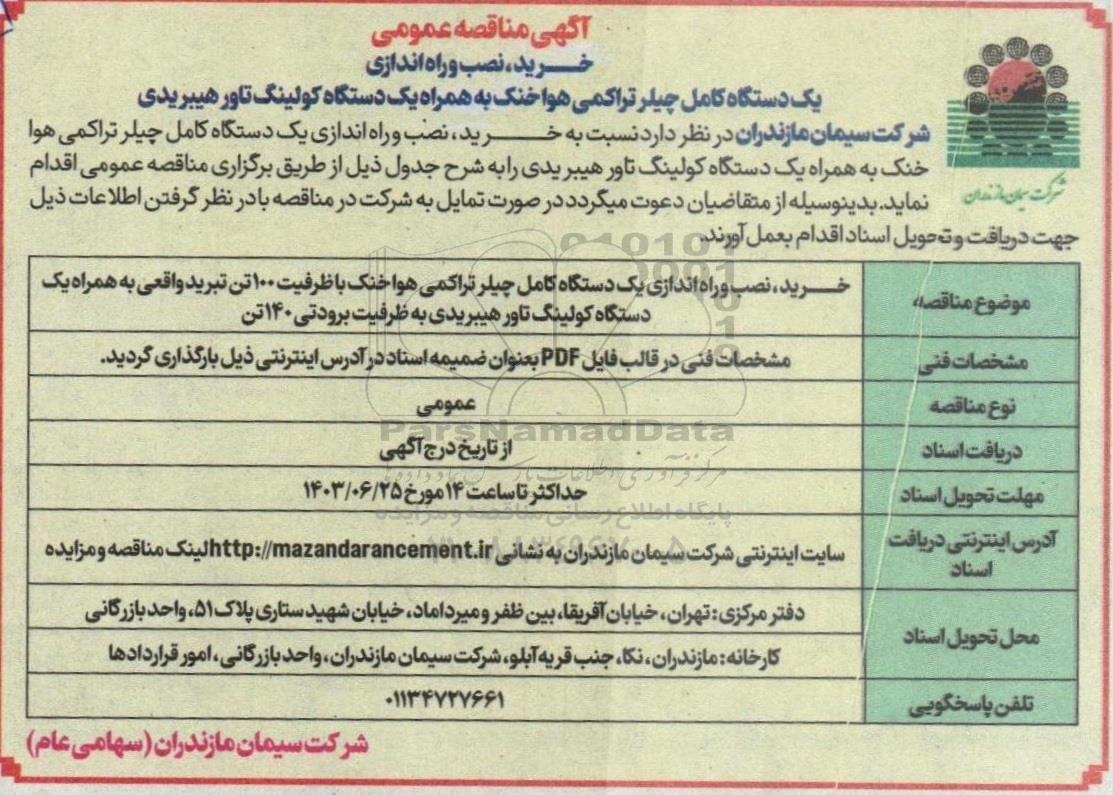 آگهی مناقصه عمومی
خرید، نصب و راه اندازی
یک دستگاه کامل چیلر تراکمی هوا خنک به همراه یک دستگاه کولینگ تاور هیبریدی
شرکت سیمان مازندران در نظر دارد نسبت به خرید، نصب و راه اندازی یک دستگاه کامل چیلر تراکمی هوا
خنک به همراه یک دستگاه کولینگ تاور هیبریدی را به شرح جدول ذیل از طریق برگزاری مناقصه عمومی اقدام
نماید. بدینوسیله از متقاضیان دعوت میگردد در صورت تمایل به شرکت در مناقصه با در نظر گرفتن اطلاعات ذیل
جهت دریافت و تحویل اسناد اقدام بعمل آورند.
شرکت سیمان مازندران
موضوع مناقصه
خرید، نصب و راه اندازی یک دستگاه کامل چیلر تراکمی هوا خنک با ظرفیت ۱۰۰ تن تبرید واقعی به همراه یک
دستگاه کولینگ تاور هیبریدی به ظرفیت برودتی ۱۴۰ تن
مشخصات فنی
مشخصات فنی در قالب فایل PDF بعنوان ضمیمه اسناد در آدرس اینترنتی ذیل بارگذاری گردید.
نوع مناقصه
عمومی
دریافت اسناد
از تاریخ درج آگهی
مهلت تحویل اسناد
حداکثر تا ساعت ۱۴ مورخ ۱۴۰۳/۰۶/۲۵
آدرس اینترنتی دریافت
اسناد
سایت اینترنتی شرکت سیمان مازندران به نشانی http://mazandarancement.ir لینک مناقصه و مزایده
محل تحویل اسناد
دفتر مرکزی: تهران، خیابان آفریقا، بین ظفر و میرداماد، خیابان شهید ستاری پلاک ۵۱، واحد بازرگانی
کارخانه: مازندران، نکا، جنب قریه آبلو، شرکت سیمان مازندران، واحد بازرگانی، امور قراردادها
تلفن پاسخگویی
۰۱۱۳۴۷۲۷۶۶۱
شرکت سیمان مازندران (سهامی عام)
ParsNamadData
پایگاه اطلاع رسانی مناقصه و مزایده